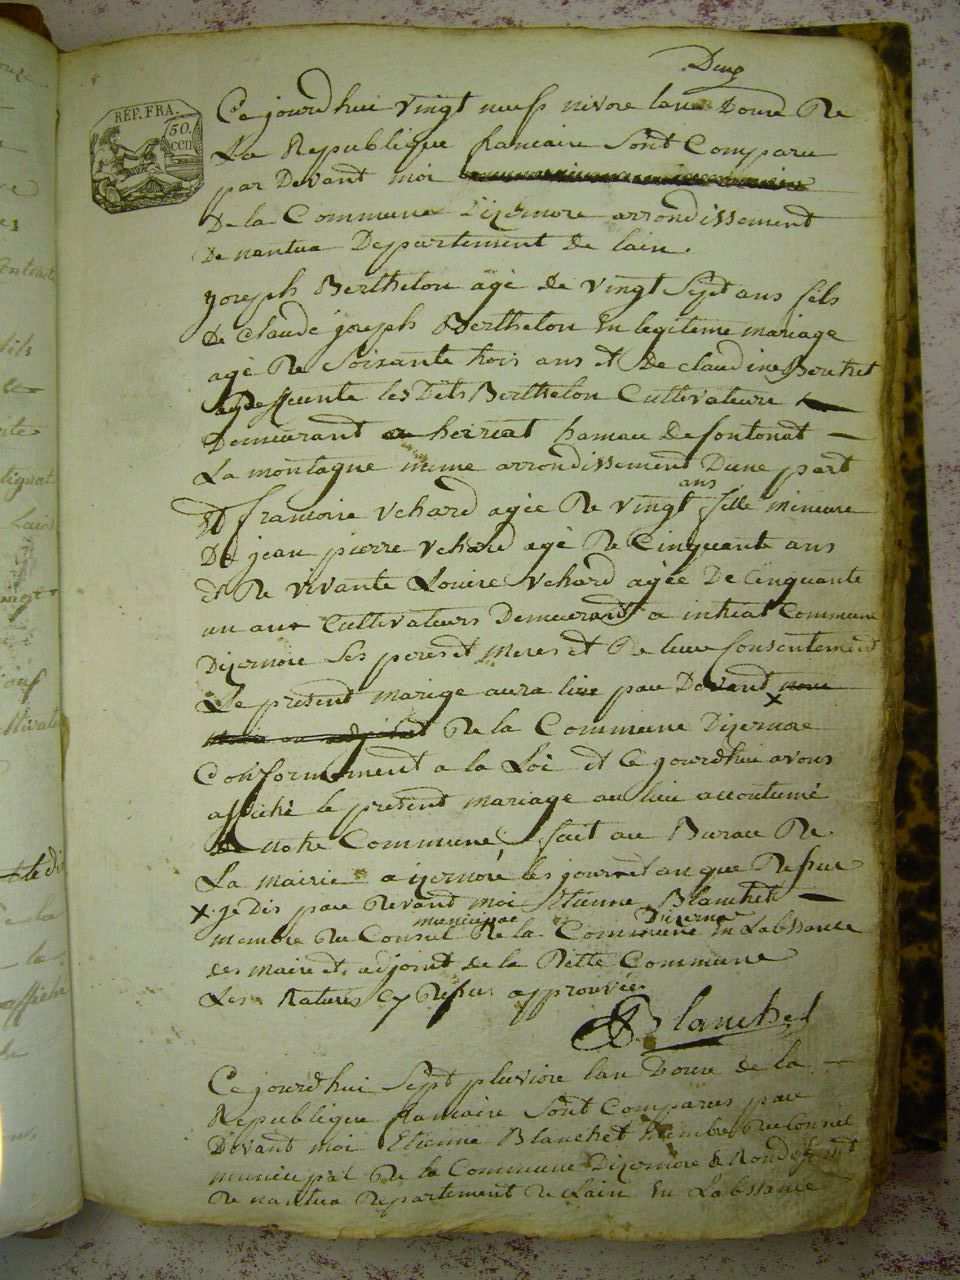 Deux
REP. FRA.
50. cen
Ce jourdhui vingt neuf nivore lan Doure De
La Republique francaire Sont Comparu
par Devant moi
De la Commune Dizernore arrondissement
De nantua Departement de lain.
joreph Berthelon agé de vingt Sept ans fils
De claude joreph Berthelon En legiteme mariage
agé De Soixante trois ans et De claudine Bouthet
les Dits Berthelon Cultivateurs
Demeurant a heiriat hamau de fontonat
La montagne meme arrondissement Dune part
Et francoire vchard agée De vingt ans fille mineure
De jean pierre vchard agé De Cinquante ans
et De vivante Louire vchard agée De Cinquante
un ans Cultivateurs Demeurant a intriat Commune
Dizernore Ses peres et meres et De leur Consentement
Le present marige aura lieu par Devant
De la Commune Dizernore
Conformement a la Loi et Ce jourdhui avons
affiché le present mariage au lieu accoutumé
De notre Commune fait au Bureau De
La mairie a izernore les jour et an que Desus
x je dis par Devant moi Etienne Blanchet
membre Du Conseil municipal De la Commune Dizernore En Labssance
des maire et adjoint de la Ditte Commune
Les Ratures Cy Desus approuvées
Blanchet
Ce jourdhui Sept pluviore lan Doure de la
Republique francaire Sont Comparus par
Devant moi Etienne Blanchet membre Du Conseil
municipal De la Commune Dizernore
De nantua Departement De Lain En Labssance